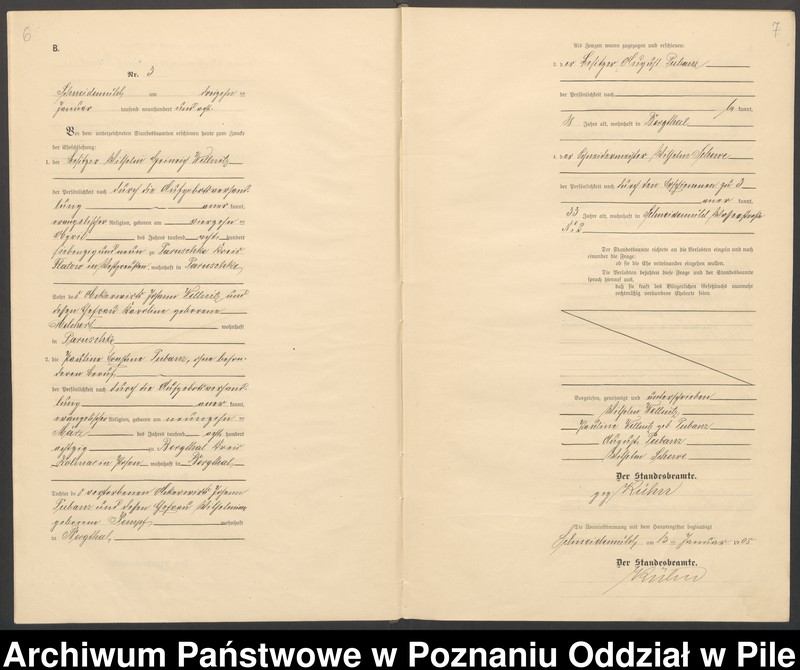 6
B.
Nr. 3
Schneidemühl am dreizehn ten
Januar tausend neunhundert und acht.
Vor dem unterzeichneten Standesbeamten erschienen heute zum Zwecke
der Eheschließung:
1. der Besitzer Wilhelm Heinrich
der Persönlichkeit nach durch die Aufgebotsverhand
lung aner kannt,
evangelischer Religion, geboren am vierzehn ten
April des Jahres tausend acht hundert
siebenzig und neun zu Paruschke Kreis
Flatow in Westpreußen, wohnhaft in Paruschke
Sohn des Ackerwirts Johann und
dessen Ehefrau Karoline geborene
Melchert wohnhaft
in Paruschke
2. die Pauline Ernstine Tubanz, ohne beson
deren Beruf
der Persönlichkeit nach durch die Aufgebotsverhand
lung aner kannt,
evangelischer Religion, geboren am neunzehn ten
März des Jahres tausend acht hundert
achtzig zu Borgthal Kreis
Kolmar in Posen, wohnhaft in Borgthal
Tochter des verstorbenen Ackerwirts Johann
Tubanz und dessen Ehefrau Wilhelmine
geborene Rempf wohnhaft
in Borgthal
7
Als Zeugen waren zugezogen und erschienen:
3. der Besitzer August Tubanz
der Persönlichkeit nach
be kannt,
Jahre alt, wohnhaft in Borgthal
4. der Schneidermeister Wilhelm Scherve
der Persönlichkeit nach durch den Erschienenen zu 3
aner kannt,
33 Jahre alt, wohnhaft in Schneidemühl
No 2
Der Standesbeamte richtete an die Verlobten einzeln und nach
einander die Frage:
ob sie die Ehe miteinander eingehen wollen.
Die Verlobten bejahten diese Frage und der Standesbeamte
sprach hierauf aus,
daß sie kraft des Bürgerlichen Gesetzbuchs nunmehr
rechtmäßig verbundene Eheleute seien.
Vorgelesen, genehmigt und unterschrieben
Wilhelm
Pauline geb Tubanz
August Tubanz
Wilhelm Scherve
Der Standesbeamte.
gez Kühn
Die Übereinstimmung mit dem Hauptregister beglaubigt
Schneidemühl, am 13 ten Januar
Der Standesbeamte.
Kühn
Archiwum Państwowe w Poznaniu Oddział w Pile